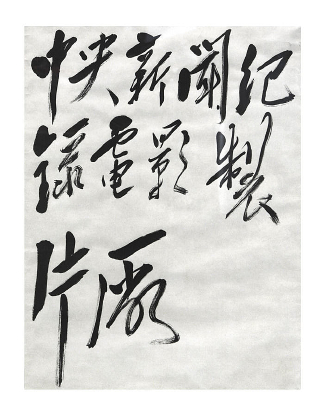 中央新聞紀
錄電影製
片廠